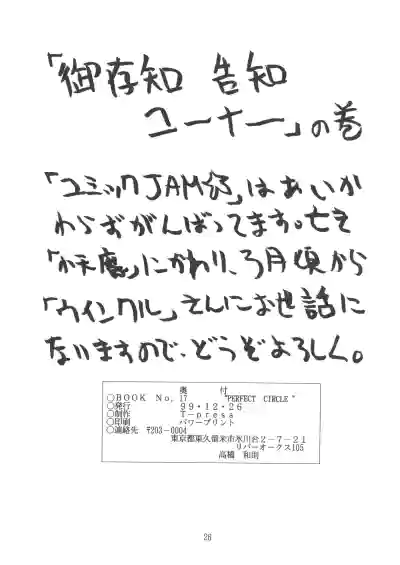 「御存知 告知
コーナー」の巻
「コミックJAM系」はあいか
わらずがんばってます。亡き
「小天魔」にかわり、3月頃から
「ウインクル」さんにお世話に
ないますので、どうぞよろしく。
奥 付
○BOOK No. 17 "PERFECT CIRCLE"
○発行 99・12・26
○制作 T-press
○印刷 パワープリント
○連絡先 〒203-0004
東京都東久留米市氷川台2-7-21
リバーオークス105
高橋 和則
26